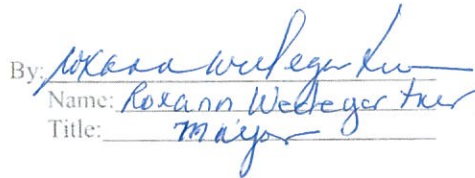 By: Roxann Weedegartner
Name: Roxann Weedegartner
Title: Mayor